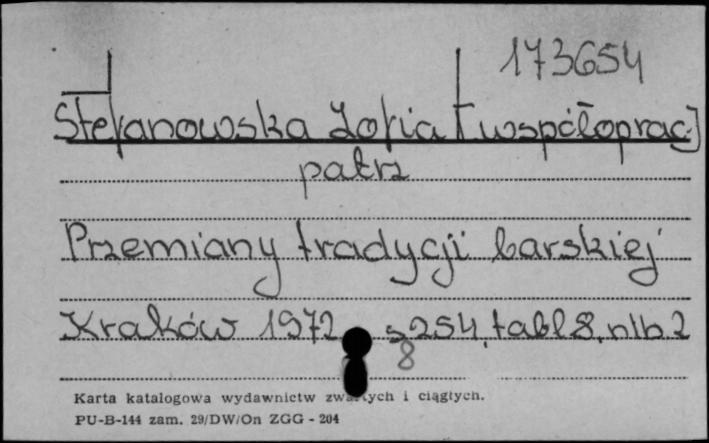 173654
Stefanowska Zofia [współoprac.]
patrz
Przemiany tradycji barskiej
Kraków 1972 s 254, tabl 8, nlb. 2
8
Karta katalogowa wydawnictw zwartych i ciągłych.
PU-B-144 zam. 29/DW/On ZGG - 204